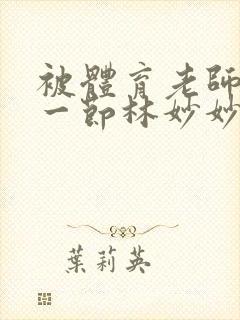 被體育老師
一節林妙妙
葉莉英